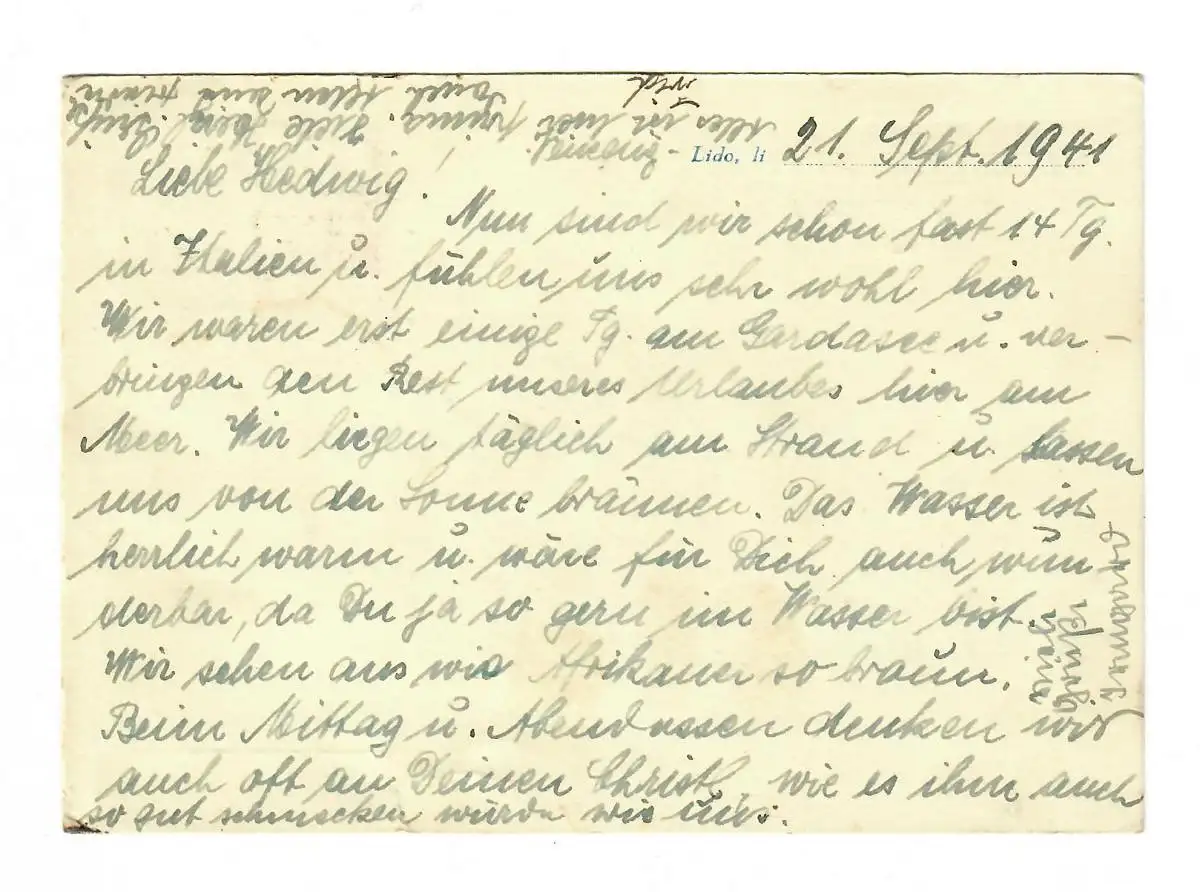 Venedig - Lido, li 21. Sept. 1941
Liebe Hedwig!
Nun sind wir schon fast 14 Tg.
in Italien u. fühlen uns sehr wohl hier.
Wir waren erst einige Tg. am Gardasee u. ver-
bringen den Rest unseres Urlaubes hier am
Meer. Wir liegen täglich am Strand u. lassen
uns von der Sonne bräunen. Das Wasser ist
herrlich warm u. wäre für Dich auch wun-
derbar, da Du ja so gern im Wasser bist.
Wir sehen aus wie Afrikaner so braun.
Beim Mittag u. Abendessen denken wir
auch oft an Deinen Christl, wie es ihm auch
so gut schmecken würde wie uns.
Alles ist hier prima. Viele herzl. Grüße
auch